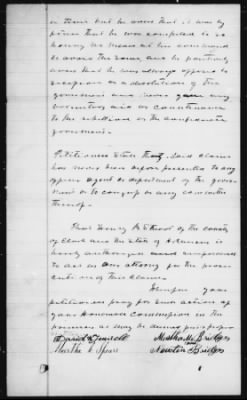 a times but he avers that it was by
force that he was compelled to so
having no means at his command
to avoid the same and he positively
avers that he was always opposed to
secession or a dissolution of the
government and never gave any
voluntary aid or countenance
to the rebellion or the confederate
government.
Petitioners state that said claim
has never been before presented to any
officer agent or department of the govern
ment or to congress or any committee
thereof.
That Henry B. Stroud of the county
of Clark and the State of Arkansas is
hereby authorized and empowered
to act as our attorney for the prosec
ution of this claim.
Wherefore your
petitioners pray for such action of
your honorable Commission in the
premises as may be deemed just & proper
David
Martha
Martha Bridges
Newton Bridges